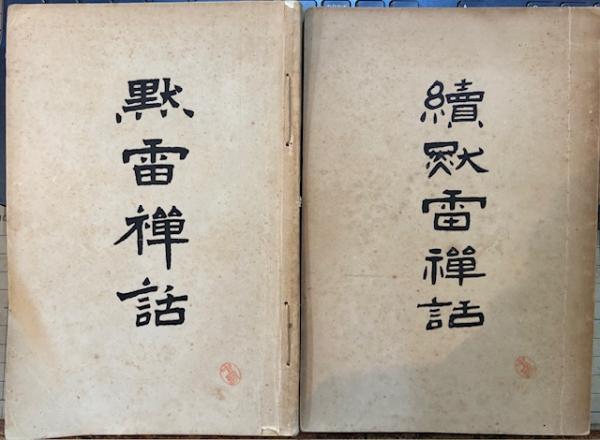 默雷禪話
續默雷禪話